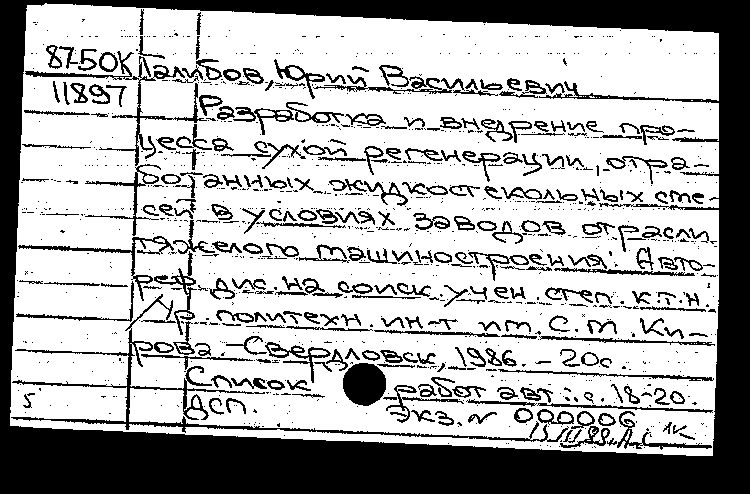 87-50К Галибов, Юрий Васильевич
11897 Разработка и внедрение про-
цесса сухой регенерации, отра-
ботанных жидкостекольных сме-
сей в условиях заводов отрасли
тяжелого машиностроения: Авто-
реф. дис. на соиск. учен. степ. к.т.н.
/Ур. политехн. ин-т им. С.М. Ки-
рова. - Свердловск, 1986. - 20с.
Список работ авт.: с. 18-20.
5 ДСП. Экз. N 000006
1К